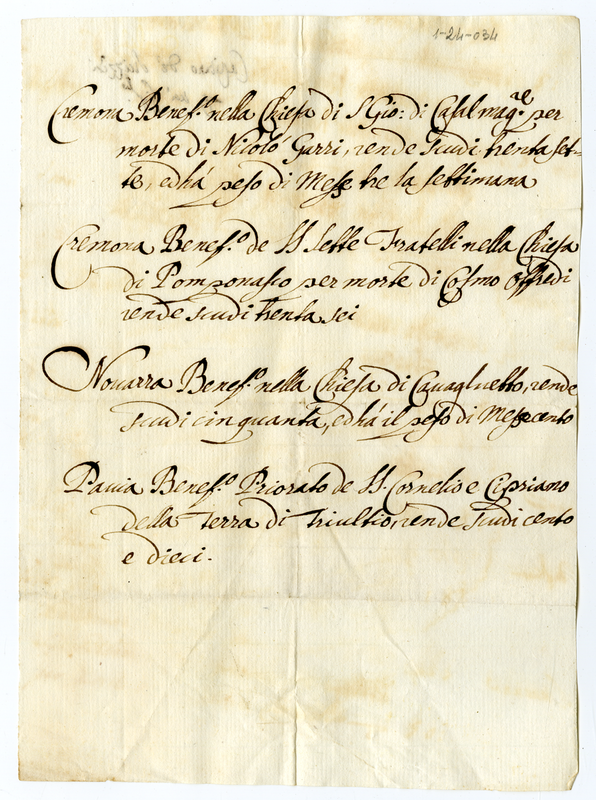 1-24-034
Cremona Benef.º nella Chiesa di S Gio: di Casal mag.re per
morte di Nicolò Garri, rende scudi trenta set-
te, ed hà peso di Messe tre la settimana
Cremona Benef.º de SS Sette Fratelli nella Chiesa
di Pomponasco per morte di Cosmo Offredi
rende scudi trenta sei
Nouarra Benef.º nella Chiesa di Cauaglietto, rende
scudi cinquanta, ed hà il peso di Messe cento
Pauia Benef.º Priorato de SS. Cornelio e Cipriano
della Terra di Triultio, rende scudi cento
e dieci.